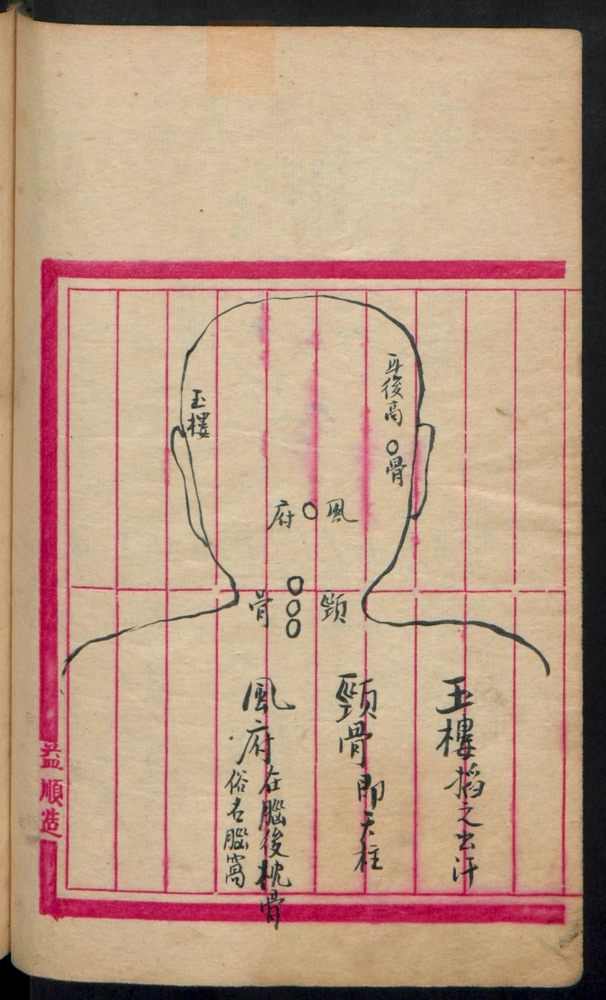 耳後高骨
玉樓
風府
頸骨
玉樓搯之出汗
頸骨即天柱
風府在腦後枕骨
俗名腦窩
益順造